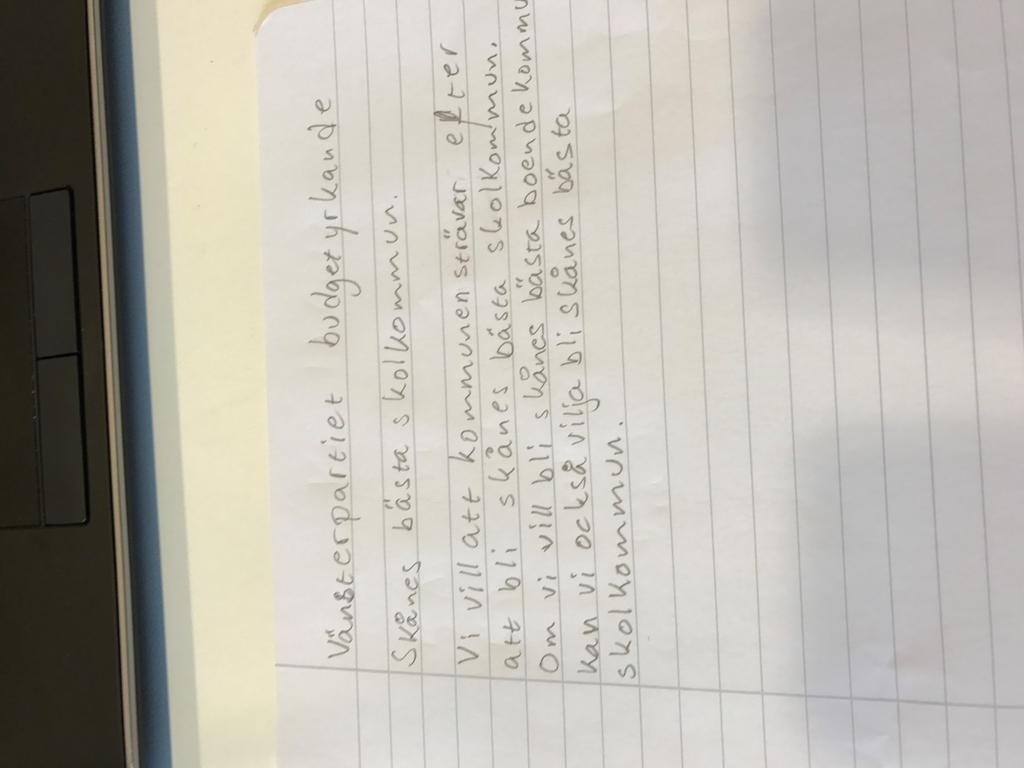 Vänsterpartiet budgetyrkande
Skånes bästa skolkommun.
Vi vill att kommunen strävar efter
att bli skånes bästa skolkommun.
Om vi vill bli skånes bästa boendekommu
kan vi också vilja bli skånes bästa
skolkommun.